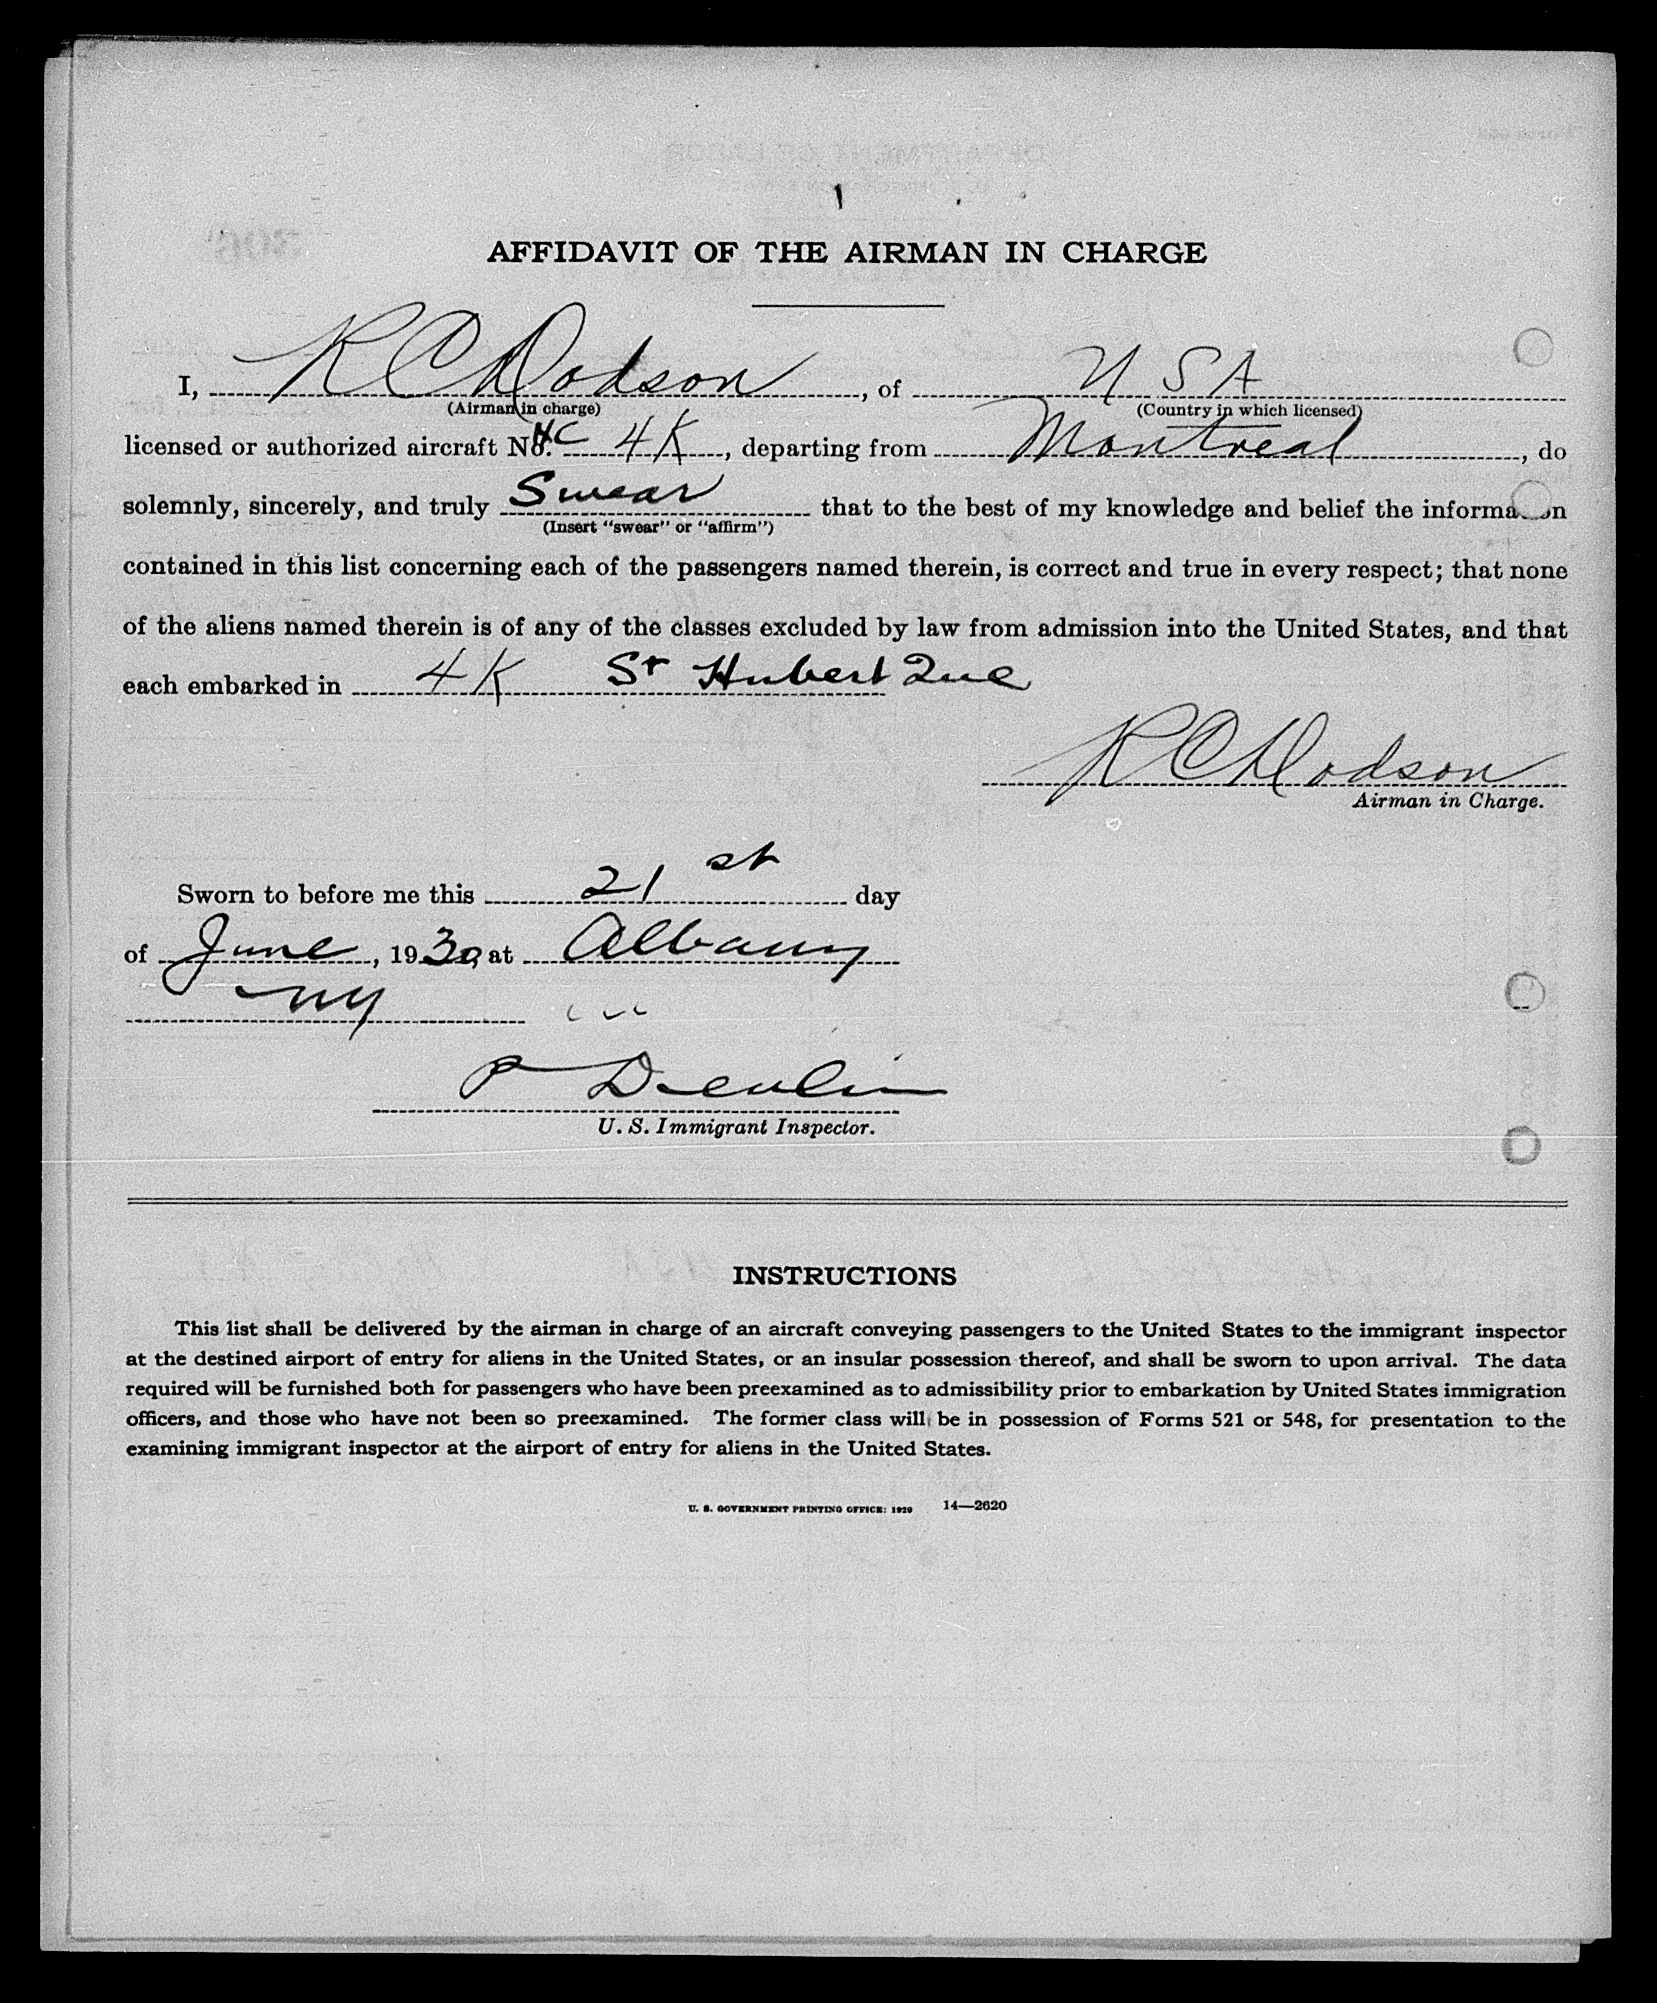 AFFIDAVIT OF THE AIRMAN IN CHARGE
I, R C Dodson, of U S A
(Airman in charge) (Country in which licensed)
licensed or authorized aircraft No. NC 4K, departing from Montreal, do
solemnly, sincerely, and truly Swear that to the best of my knowledge and belief the information
(Insert "swear" or "affirm")
contained in this list concerning each of the passengers named therein, is correct and true in every respect; that none
of the aliens named therein is of any of the classes excluded by law from admission into the United States, and that
each embarked in 4K St Hubert Que
R C Dodson
Airman in Charge.
Sworn to before me this 21st day
of June, 1930, at Albany
NY
P Devlin
U. S. Immigrant Inspector.
INSTRUCTIONS
This list shall be delivered by the airman in charge of an aircraft conveying passengers to the United States to the immigrant inspector
at the destined airport of entry for aliens in the United States, or an insular possession thereof, and shall be sworn to upon arrival. The data
required will be furnished both for passengers who have been preexamined as to admissibility prior to embarkation by United States immigration
officers, and those who have not been so preexamined. The former class will be in possession of Forms 521 or 548, for presentation to the
examining immigrant inspector at the airport of entry for aliens in the United States.
U. S. GOVERNMENT PRINTING OFFICE: 1929 14—2620